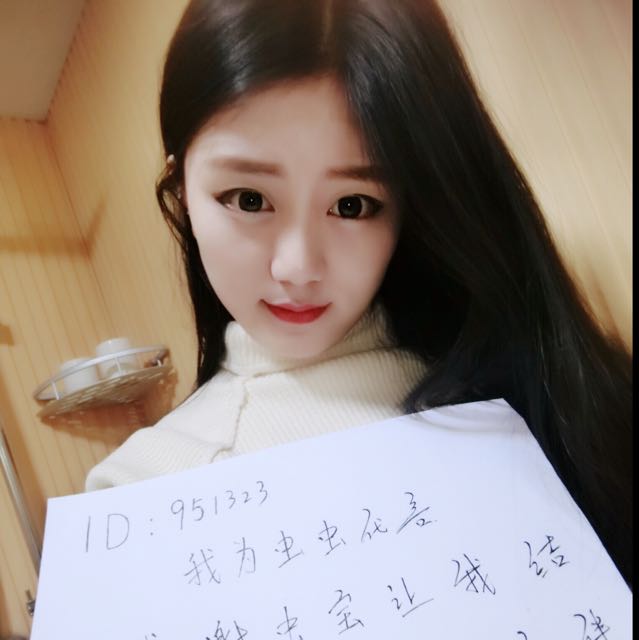 ID:951323
我为虫虫代言
谢虫宝让我结